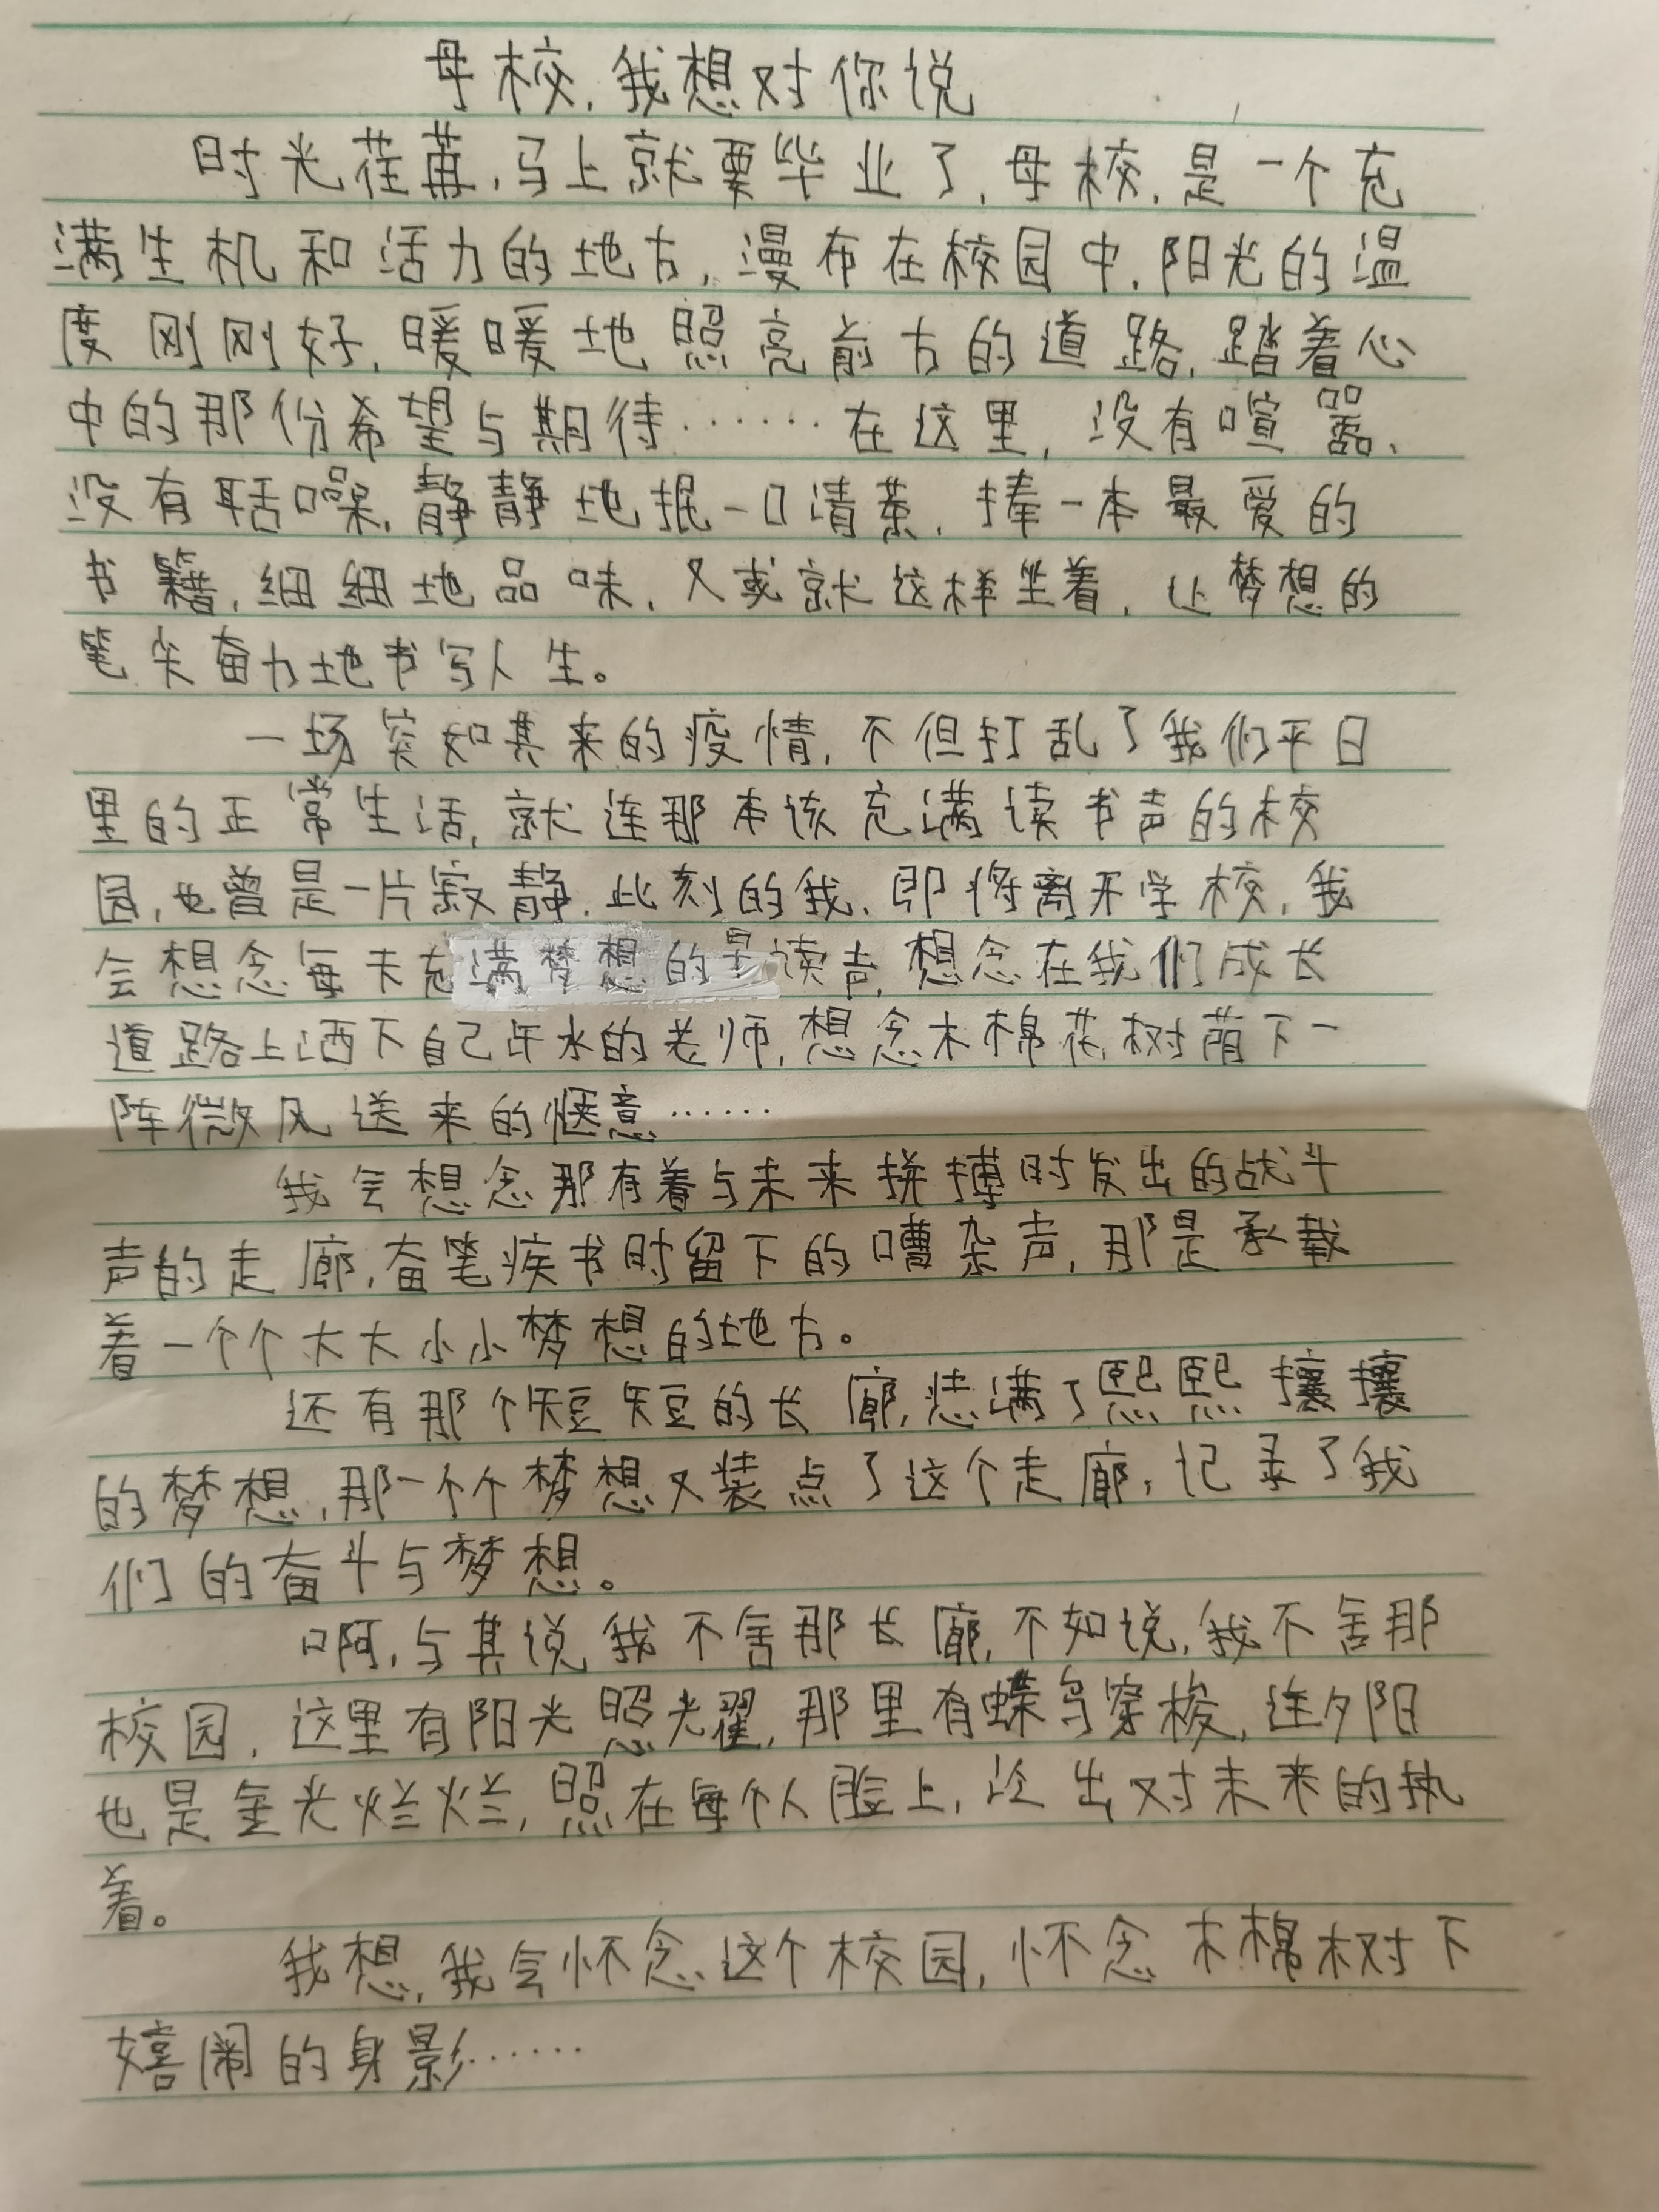 母校,我想对你说
时光荏苒,马上就要毕业了,母校,是一个充
满生机和活力的地方,漫布在校园中,阳光的温
度刚刚好,暖暖地照亮前方的道路,踏着心
中的那份希望与期待……在这里,没有喧嚣、
没有聒噪,静静地抿一口清茶,捧一本最爱的
书籍,细细地品味,又或就这样坐着,让梦想的
笔尖奋力地书写人生。
一场突如其来的疫情,不但打乱了我们平日
里的正常生活,就连那本该充满读书声的校
园,也曾是一片寂静,此刻的我,即将离开学校,我
会想念每天充满梦想的早读声,想念在我们成长
道路上洒下自己汗水的老师,想念木棉花树荫下一
阵微风送来的惬意……
我会想念那有着与未来拼搏时发出的战斗
声的走廊,奋笔疾书时留下的嘈杂声,那是承载
着一个个大大小小梦想的地方。
还有那个短短的长廊,装满了熙熙攘攘
的梦想,那一个个梦想又装点了这个走廊,记录了我
们的奋斗与梦想。
啊,与其说我不舍那长廊,不如说,我不舍那
校园,这里有阳光照光耀,那里有蝶鸟穿梭,连夕阳
也是金光烂烂,照在每个人脸上,泛出对未来的执
着。
我想,我会怀念这个校园,怀念木棉树下
嬉闹的身影……